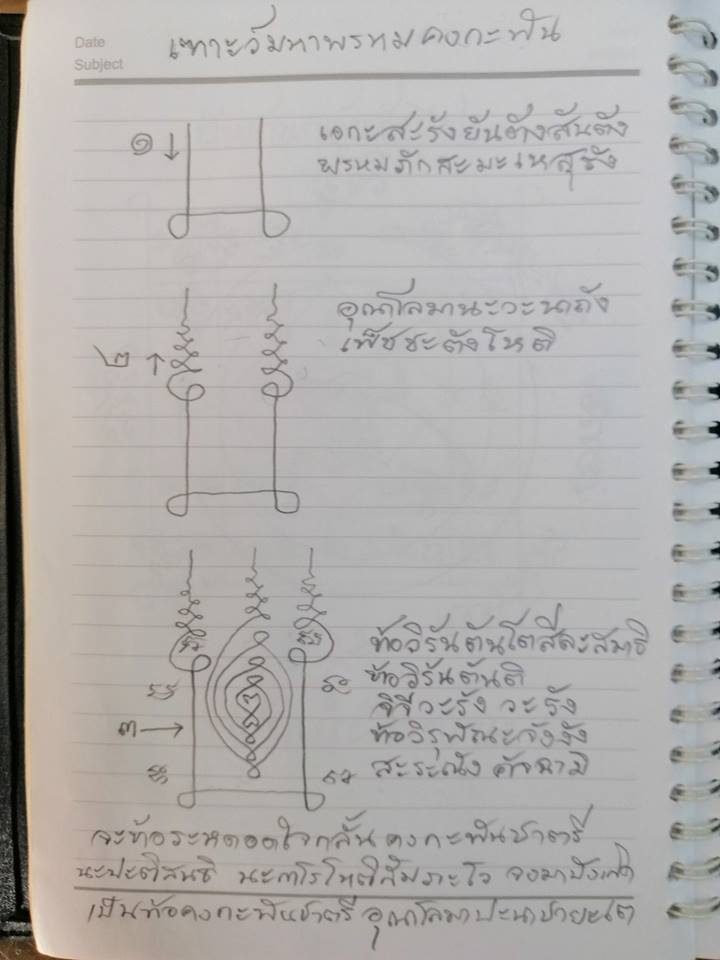 Date
Subject
เฑาะว์มหาพรหมคงกะพัน
๑
เอกะสะรังยันตังสันตัง
พรหมภักสะมะเหสุขัง
๒
อุณาโลมานะวะนาถัง
เพ็ชชะตังโหติ
ท้อวิรันตันโตสีละสมาธิ
ท้อวิรันตันติ
วะรัง วะรัง
๓
ท้อวิรุฬ
สะระณัง คัจฉามิ
คงกะพันชาตรี
นะปะติสนธิ นะกาโรโหติสัมภะโว จงมาบังเกิด
เป็นท้อคงกะพันชาตรี อุณาโลมาปะนาชายะเต